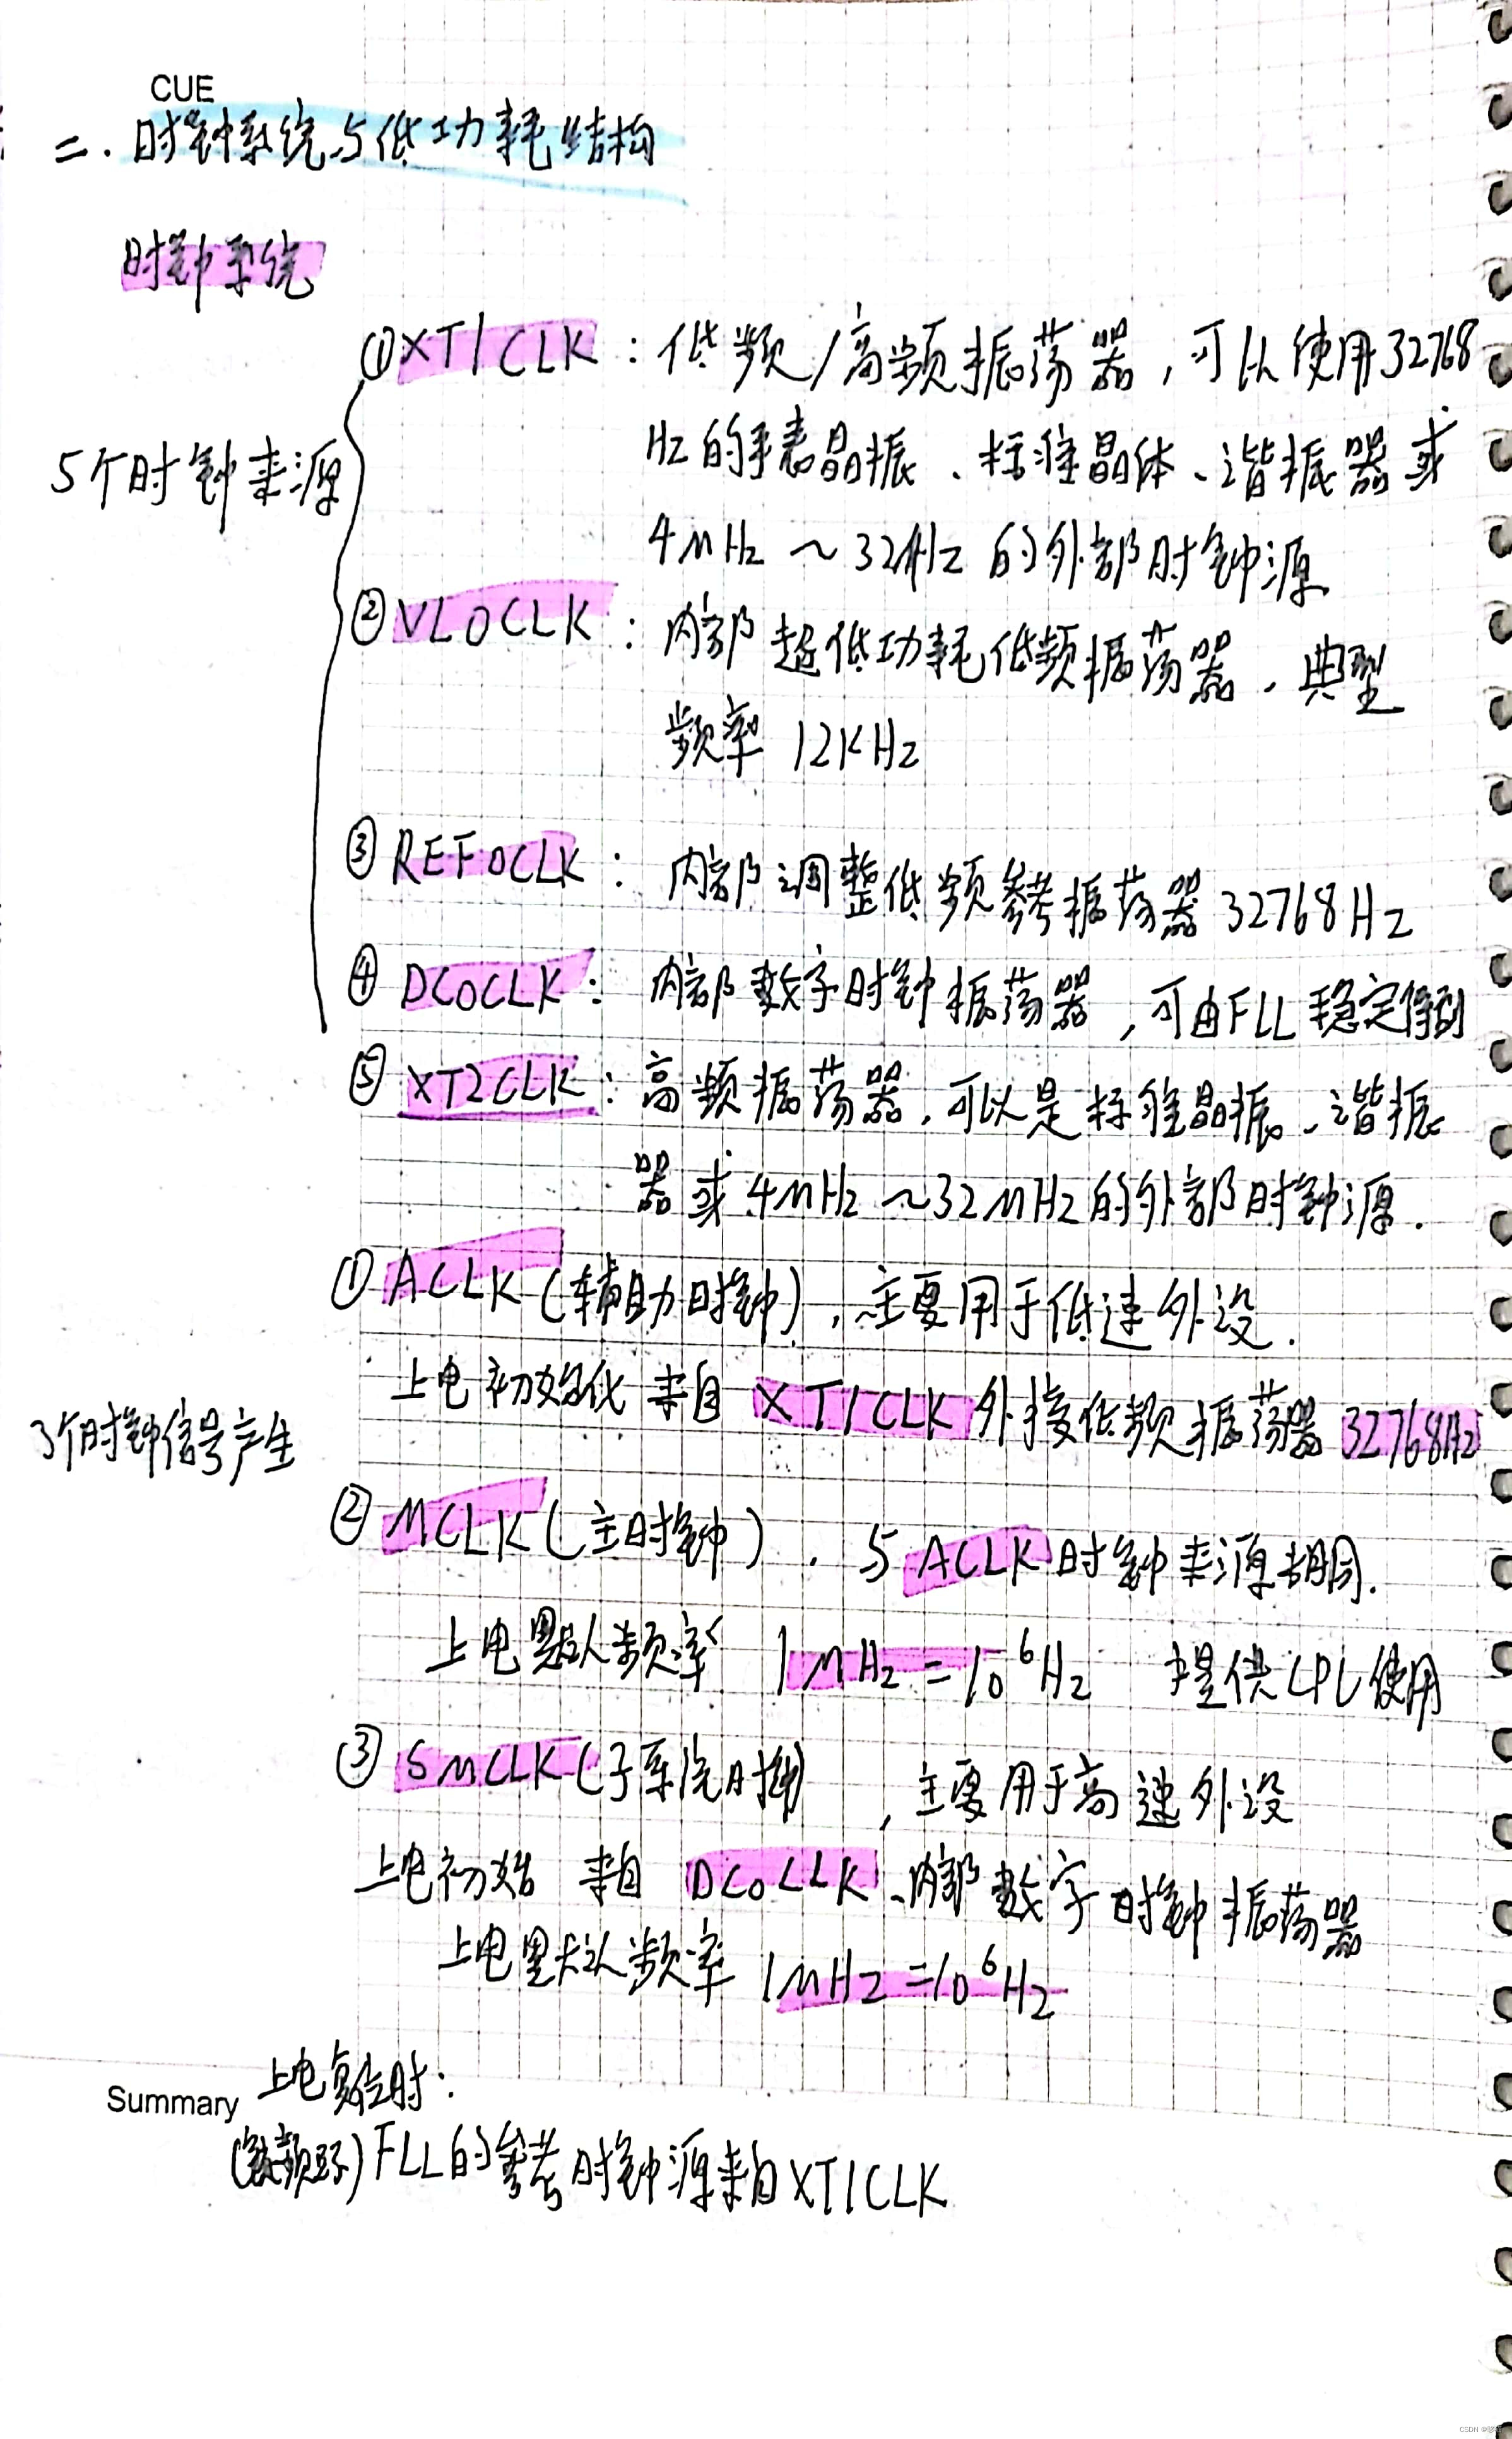 CUE
二.时钟系统与低功耗结构
时钟系统
5个时钟来源
①XT1CLK：低频/高频振荡器，可以使用32768
Hz的手表晶振、标准晶体、谐振器或
4MHz～32Hz的外部时钟源
②VLOCLK：内部超低功耗低频振荡器，典型
频率12KHz
③REFOCLK：内部调整低频参考振荡器32768Hz
④DCOCLK：内部数字时钟振荡器，可由FLL稳定得到
⑤XT2CLK：高频振荡器，可以是标准晶振、谐振
器或4MHz～32MHz的外部时钟源.
3个时钟信号产生
①ACLK(辅助时钟)，主要用于低速外设.
上电初始化来自XT1CLK外接低频振荡器32768Hz
②MCLK(主时钟)，与ACLK时钟来源相同.
上电默认频率 1MHz=10⁶Hz 提供CPU使用
③SMCLK(子系统时钟)，主要用于高速外设
上电初始 来自DCOCLK、内部数字时钟振荡器
上电默认频率 1MHz=10⁶Hz
Summary 上电复位时：
(锁频环)FLL的参考时钟源来自XT1CLK
CSDN